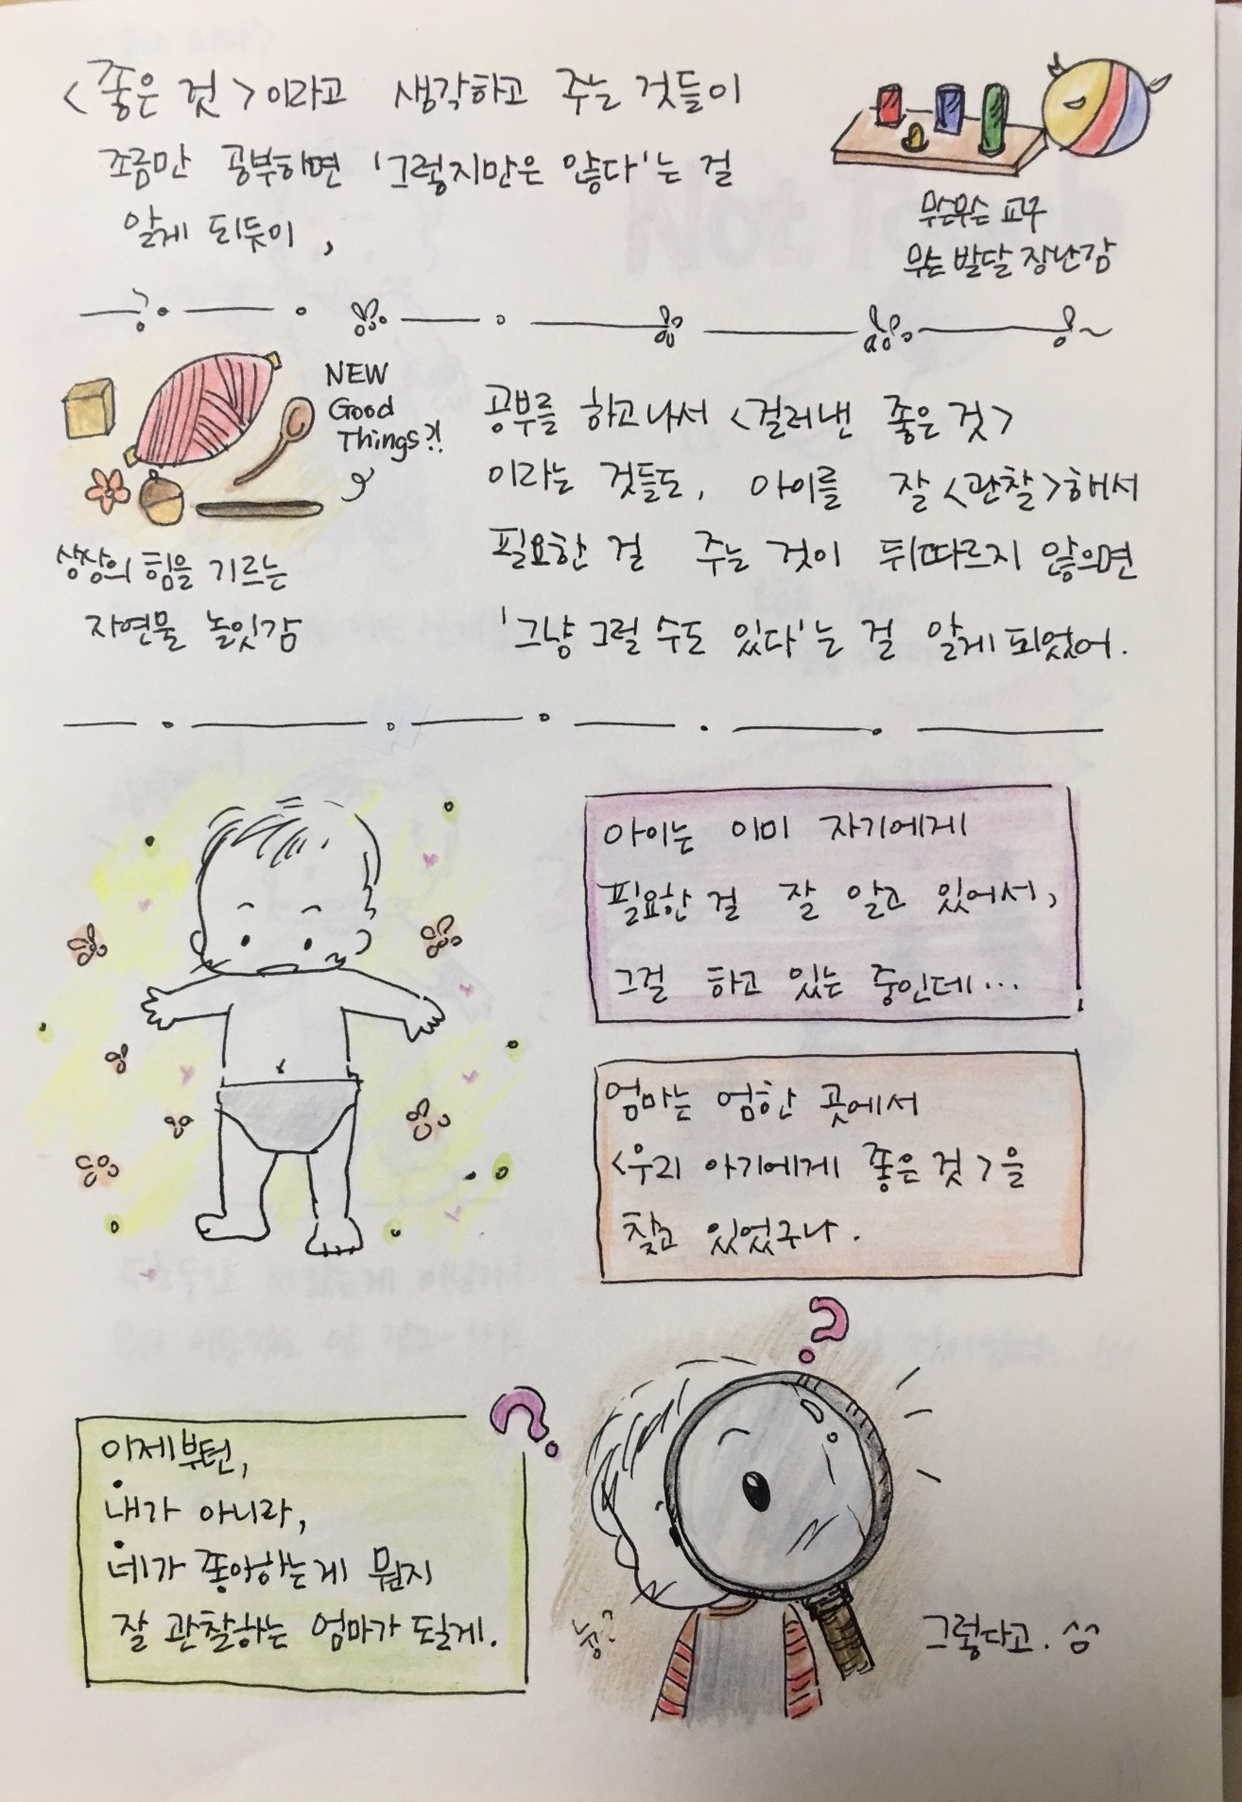 <좋은 것>이라고 생각하고 주는 것들이
조금만 공부하면 '그렇지만은 않다'는 걸
알게 되듯이,
무슨무슨 교구
무슨 발달 장난감
NEW
Good
Things?!
상상의 힘을 기르는
자연물 놀잇감
공부를 하고나서 <걸러낸 좋은 것>
이라는 것들도, 아이를 잘 <관찰>해서
필요한 걸 주는 것이 뒤따르지 않으면
'그냥 그럴 수도 있다'는 걸 알게 되었어.
아이는 이미 자기에게
필요한 걸 잘 알고 있어서,
그걸 하고 있는 중인데...
엄마는 엄한 곳에서
<우리 아기에게 좋은 것>을
찾고 있었구나.
이제부턴,
내가 아니라,
네가 좋아하는게 뭔지
잘 관찰하는 엄마가 될게.
그렇다고.